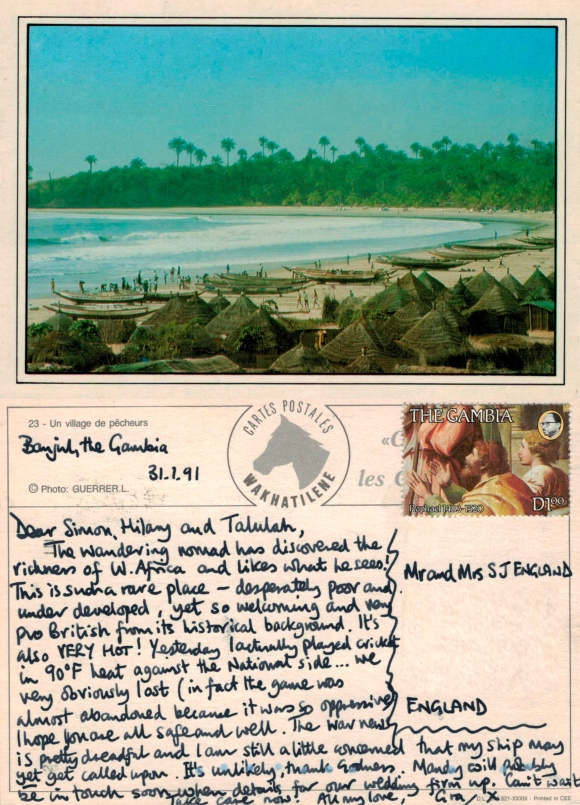 23 - Un village de pêcheurs
Banjul, the Gambia
31.1.91
© Photo: GUERRER.L.
CARTES POSTALES
WAKHATILENE
«C
les G
THE GAMBIA
Raphael 1483-1520
D1.00
Dear Simon, Hilary and Talulah,
The wandering nomad has discovered the
richness of W. Africa and likes what he sees!
This is such a rare place – desperately poor and
under developed, yet so welcoming and very
pro British from its historical background. It's
also VERY HOT! Yesterday I actually played cricket
in 90°F heat against the National side... we
very obviously lost (in fact the game was
almost abandoned because it was so oppressive)
I hope you are all safe and well. The war news
is pretty dreadful and I am still a little concerned that my ship may
yet get called upon. It's unlikely, thank Godness. Mandy will probably
be in touch soon when details for our wedding firm up. Can't wait
Take care now! All my love,
Mr and Mrs S J ENGLAND
ENGLAND
Printed in CEE